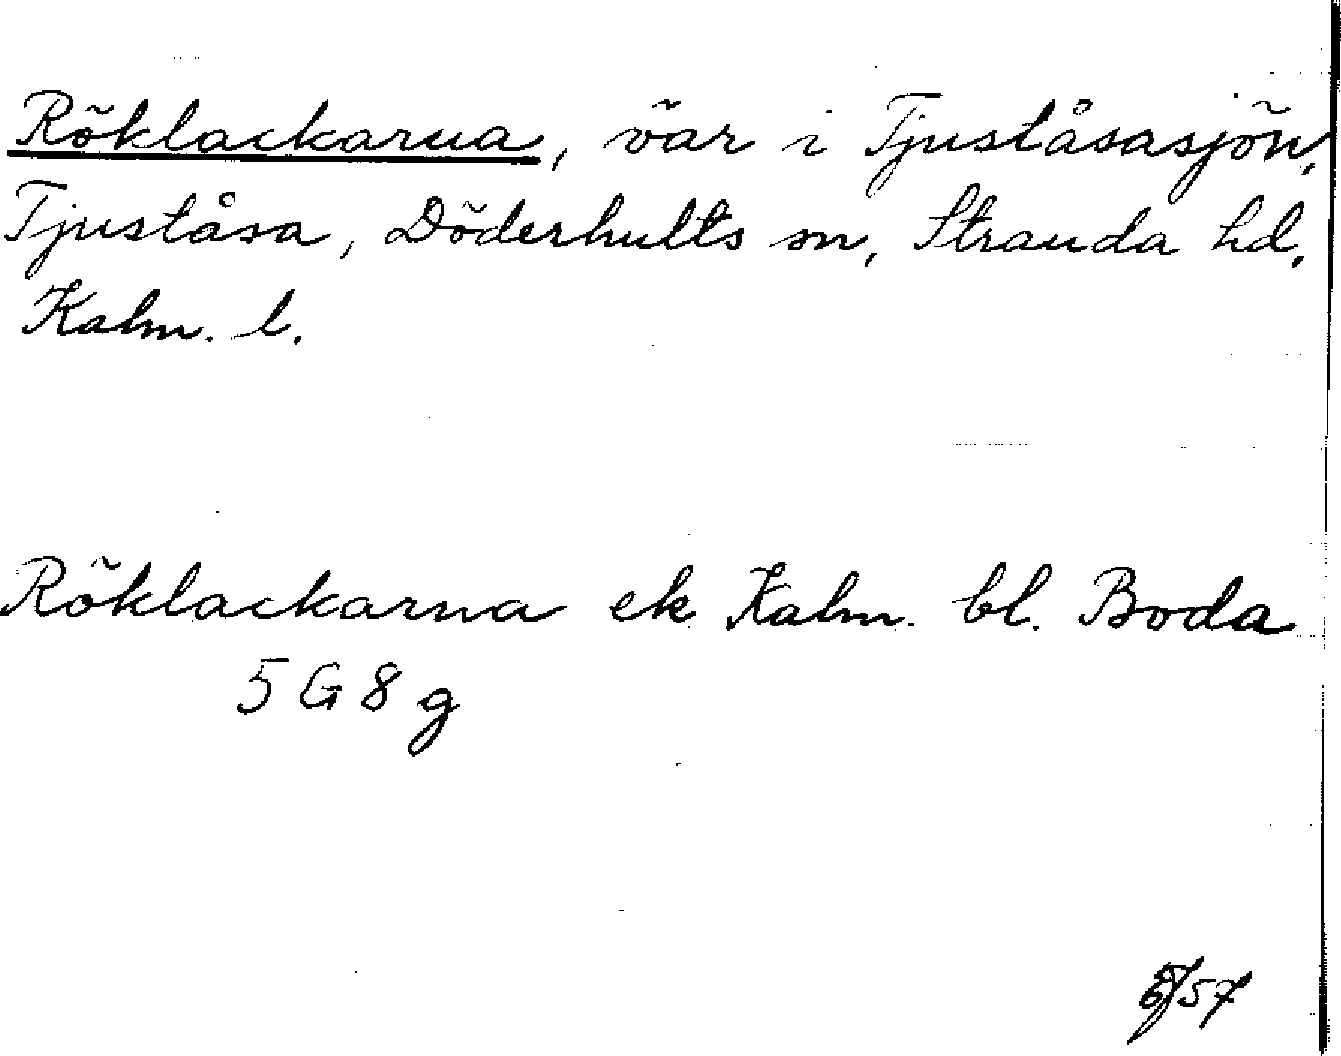 Röklackarna, öar i Tjuståsasjön,
Tjuståsa, Döderhults sn, Stranda hd,
Kalm. l.
Röklackarna ek Kalm. bl. Boda
5 G 8 g